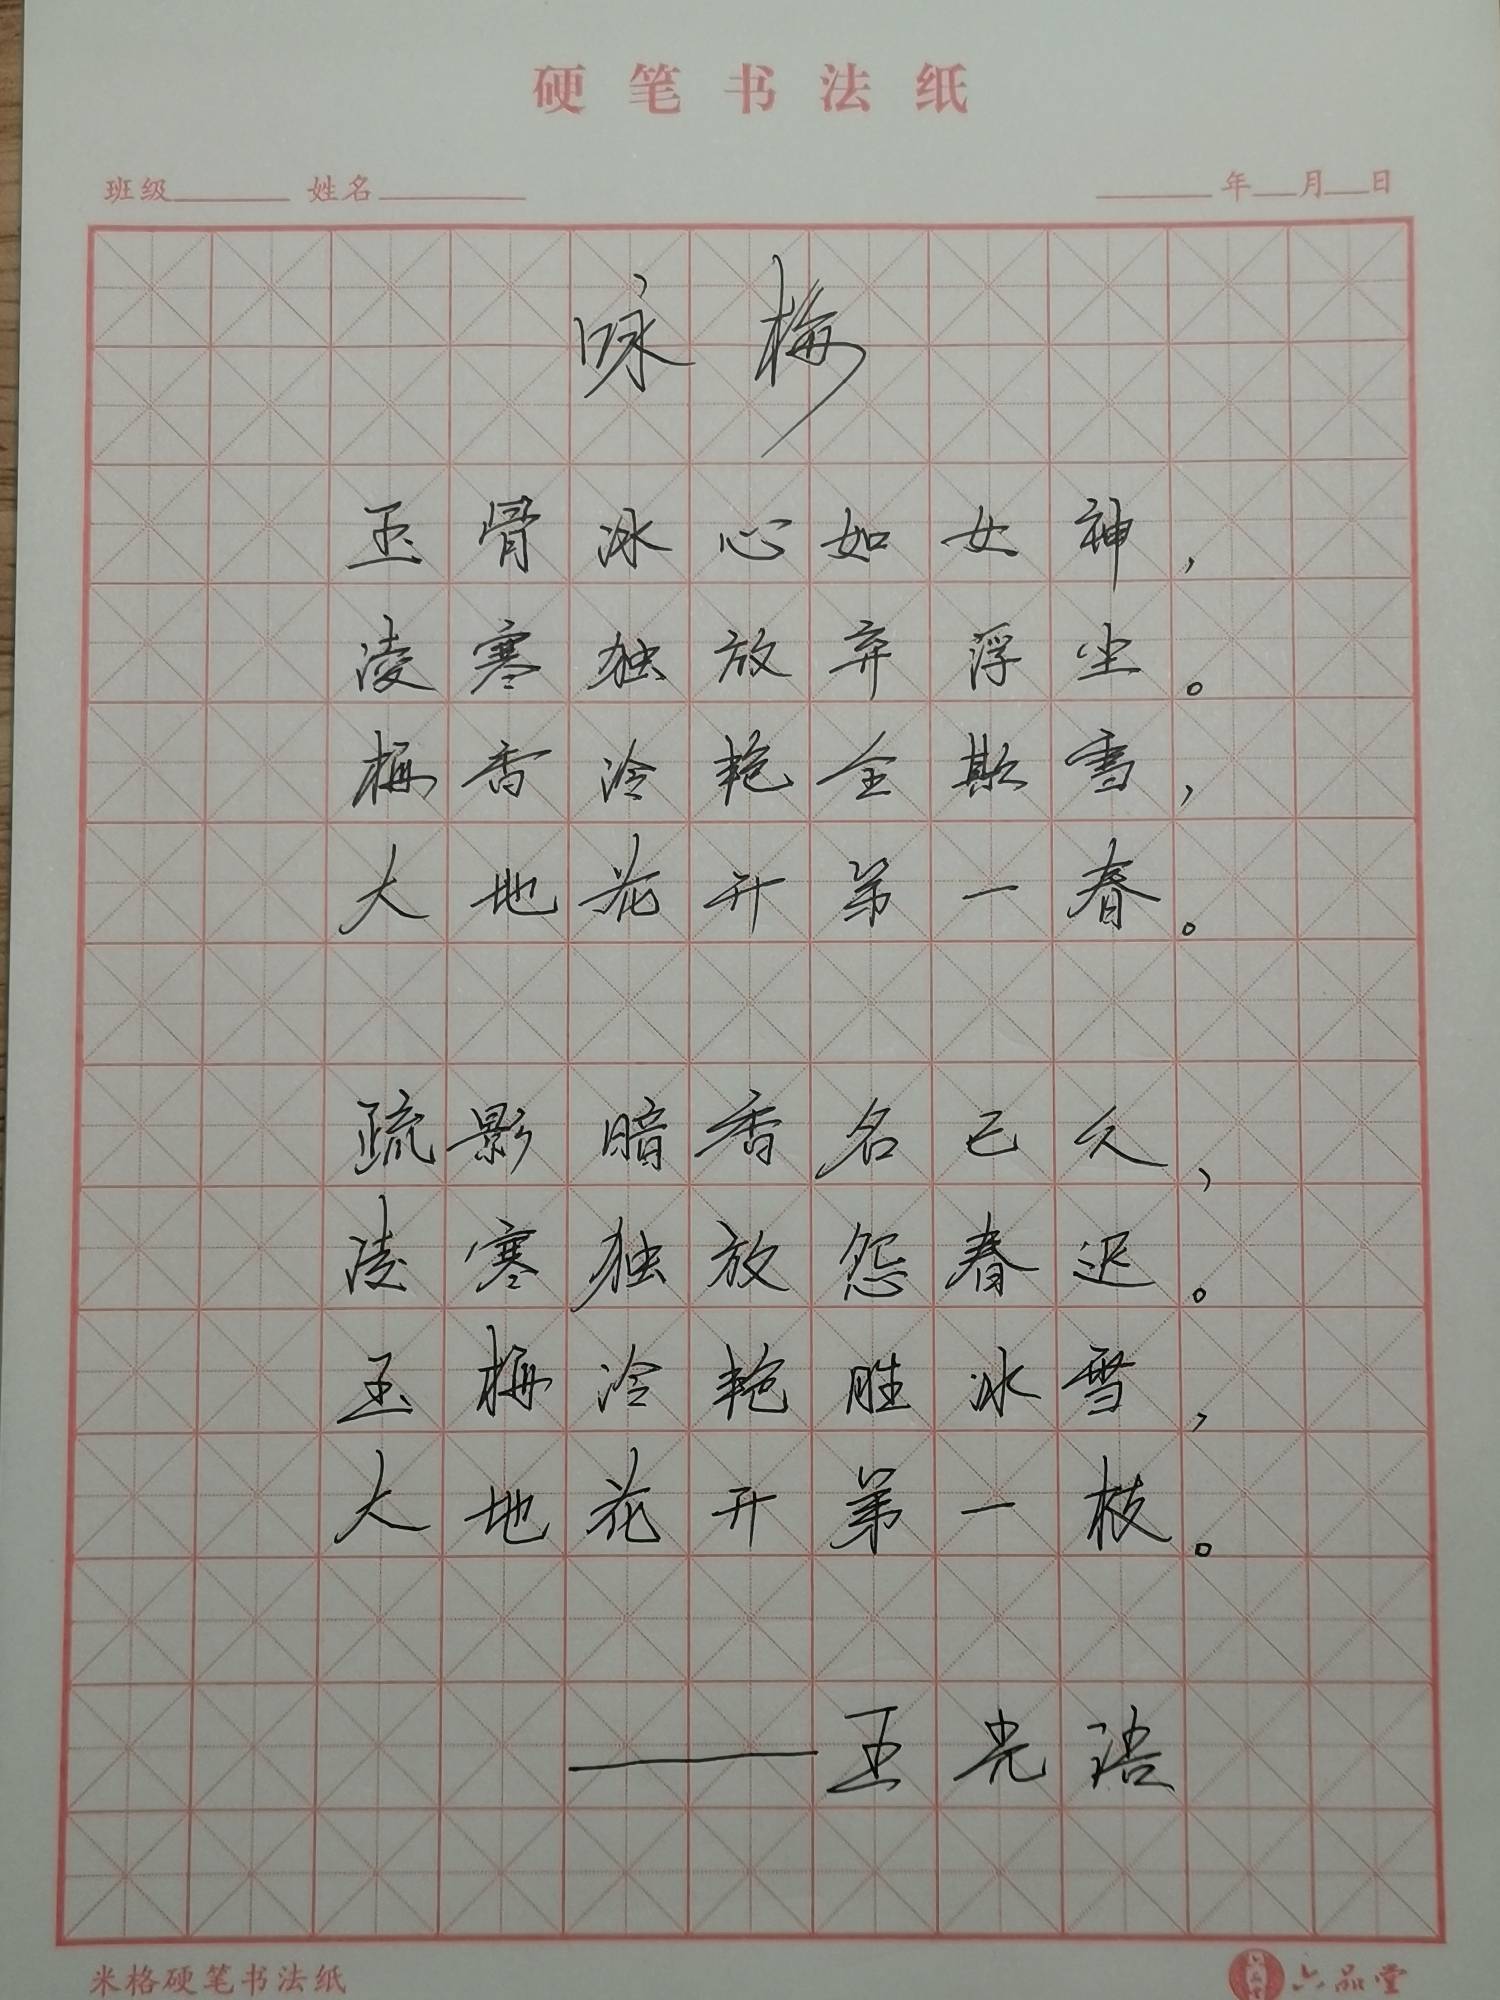 硬笔书法纸
班级 姓名 年 月 日
咏梅
玉骨冰心如女神，
凌寒独放弃浮尘。
梅香冷艳全欺雪，
大地花开第一春。
疏影暗香名已久，
凌寒独放怨春迟。
玉梅冷艳胜冰雪，
大地花开第一枝。
——王光
米格硬笔书法纸
六品堂